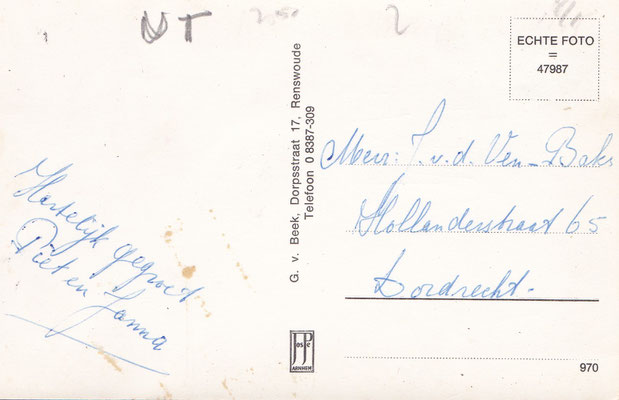 NT
2
ECHTE FOTO
=
47987
Hartelijk gegroet
Piet en Janna
G. v. Beek, Dorpsstraat 17, Renswoude
Telefoon 0 8387-309
Mevr: T. v. d. Ven-Baks
Hollanderstraat 65
Dordrecht-
JosPe
ARNHEM
970